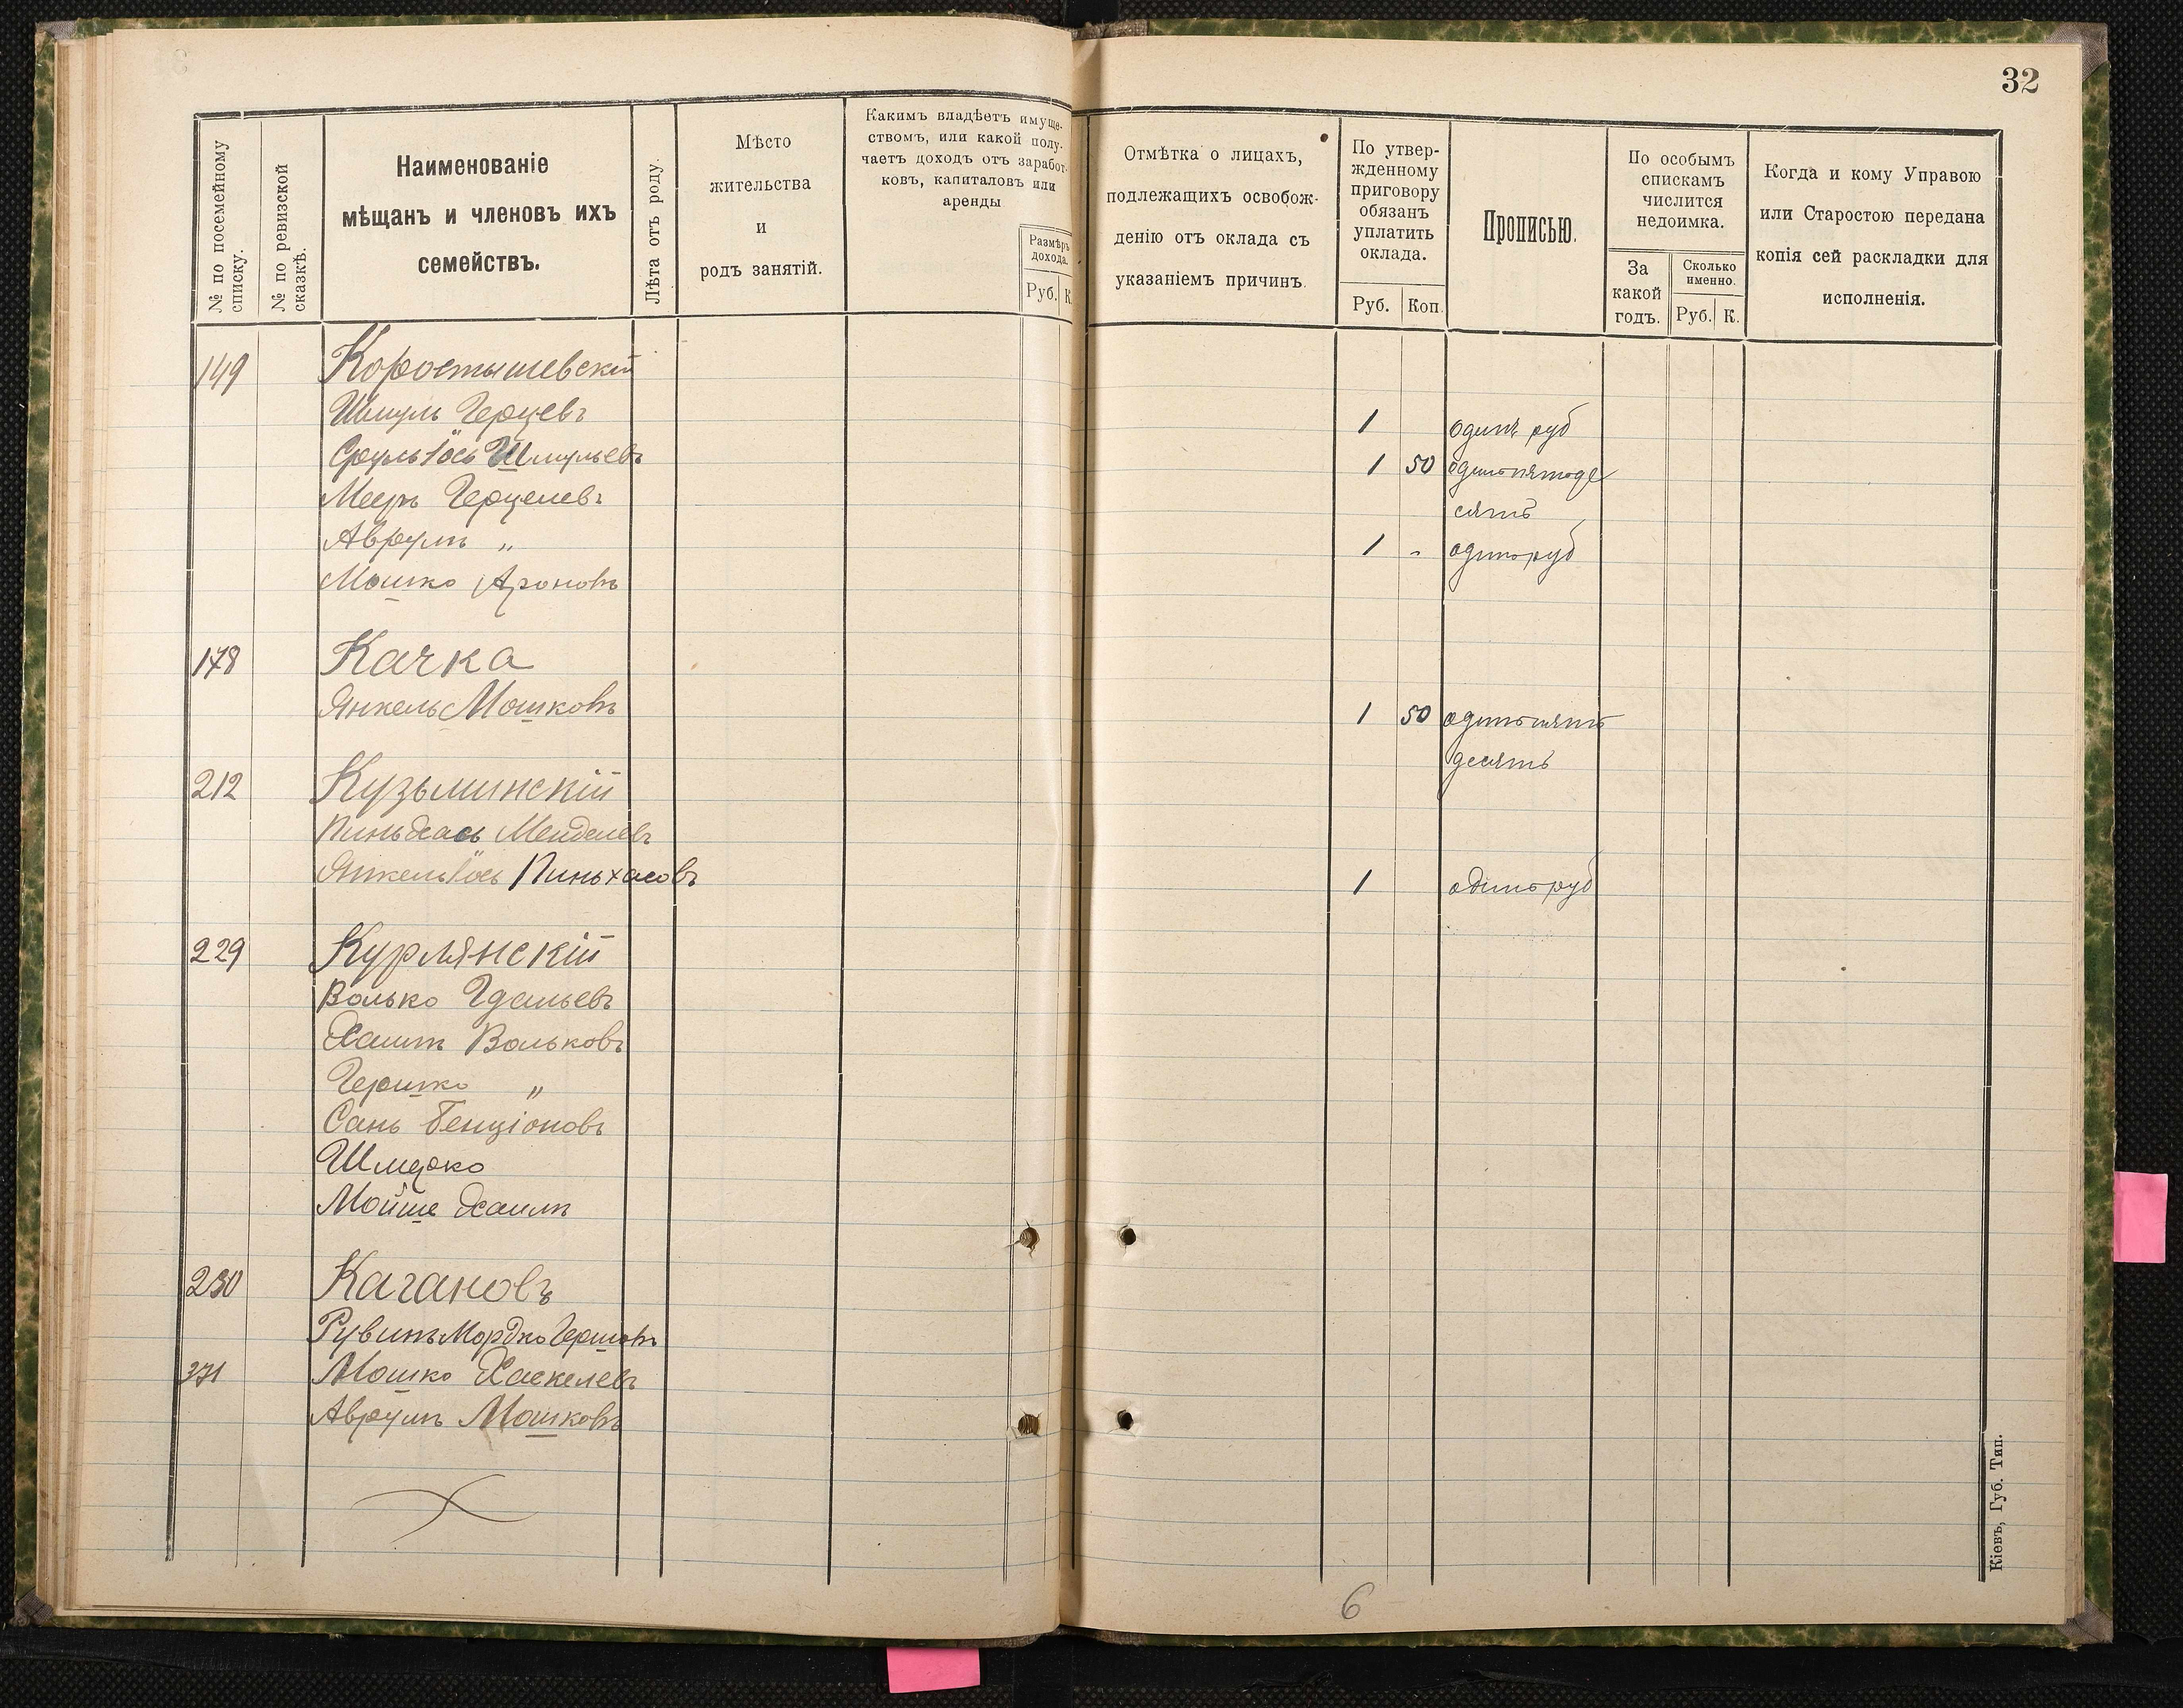 32
№ по посемейному
списку.
№ по ревизской
сказкѣ.
Наименованіе
мѣщанъ и членовъ ихъ
семействъ.
Лѣта отъ роду.
Мѣсто
жительства
и
родъ занятій.
Какимъ владѣетъ имуще-
ствомъ, или какой полу-
чаетъ доходъ отъ заработ-
ковъ, капиталовъ или
аренды
Размѣръ
дохода.
Руб. К.
Отмѣтка о лицахъ,
подлежащихъ освобож-
денію отъ оклада съ
указаніемъ причинъ.
По утвер-
жденному
приговору
обязанъ
уплатить
оклада.
Руб. Коп.
Прописью.
По особымъ
спискамъ
числится
недоимка.
За
какой
годъ.
Сколько
именно.
Руб. К.
Когда и кому Управою
или Старостою передана
копія сей раскладки для
исполненія.
149 Коростышевскій
Шмуль Герцевъ 1 одинъ руб
Сруль Іось Шмульевъ 1 50 одинъ пятьде
Мееръ Герцелевъ сятъ
Аврумъ „ 1 - одинъ руб
Мошко Ароновъ
178 Качка
Янкель Мошковъ 1 50 одинъ пять
десятъ
212 Кузьминскій
Пиньхась Менделевъ
Янкель Іось Пиньхасовъ 1 одинъ руб
229 Курлянскій
Волько Гдальевъ
Хаимъ Вольковъ
Гершко „
Сань Бенціоновъ
Шмерко
Мойше Хаимъ
230 Кагановъ
Рувинъ Мордко Гершовъ
371 Мошко Хаскелевъ
Аврумъ Мошковъ
6
Кіевъ, Губ. Тип.